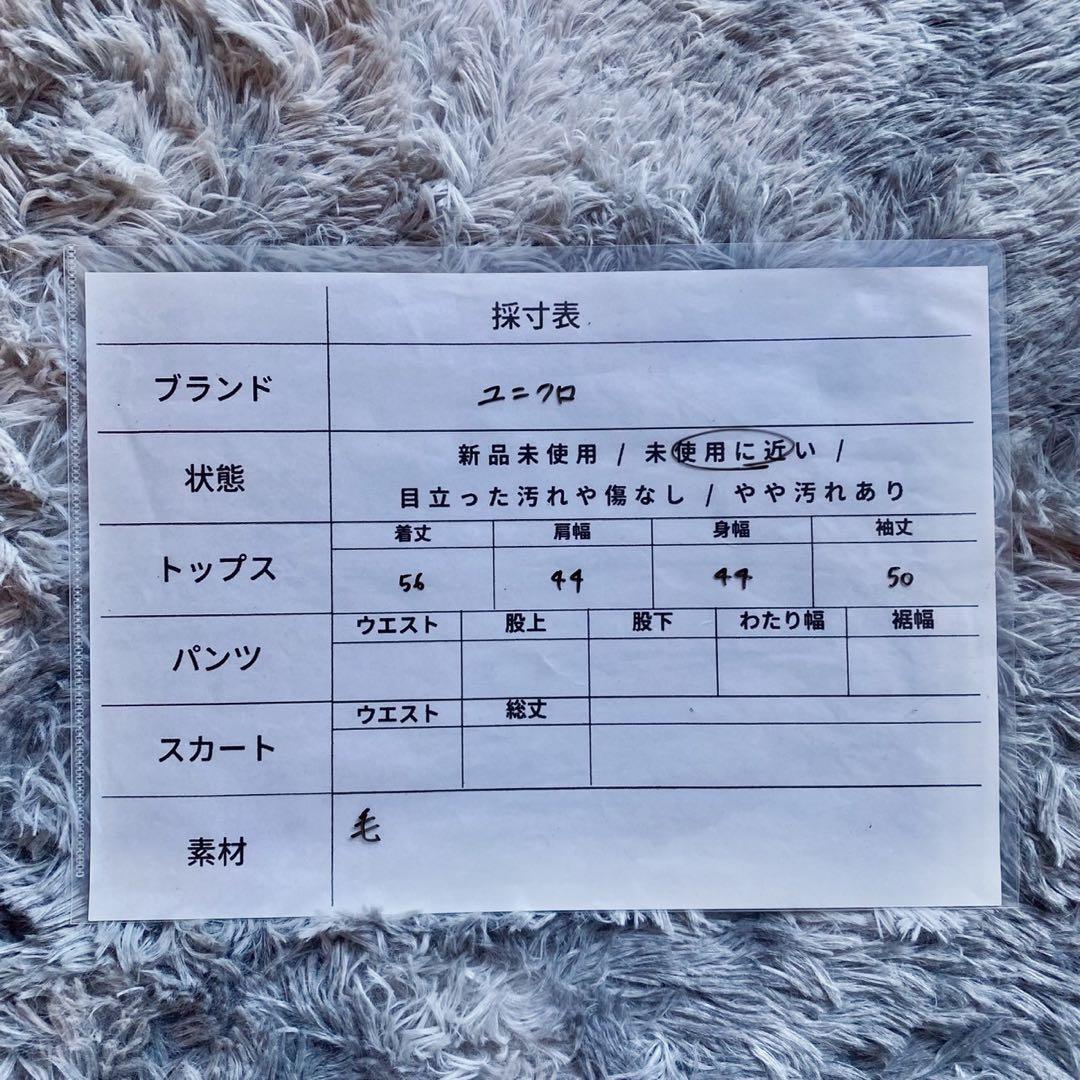 採寸表
ブランド ユニクロ
状態 新品未使用 / 未使用に近い /
目立った汚れや傷なし / やや汚れあり
トップス 着丈 肩幅 身幅 袖丈
56 44 44 50
パンツ ウエスト 股上 股下 わたり幅 裾幅
スカート ウエスト 総丈
素材 毛